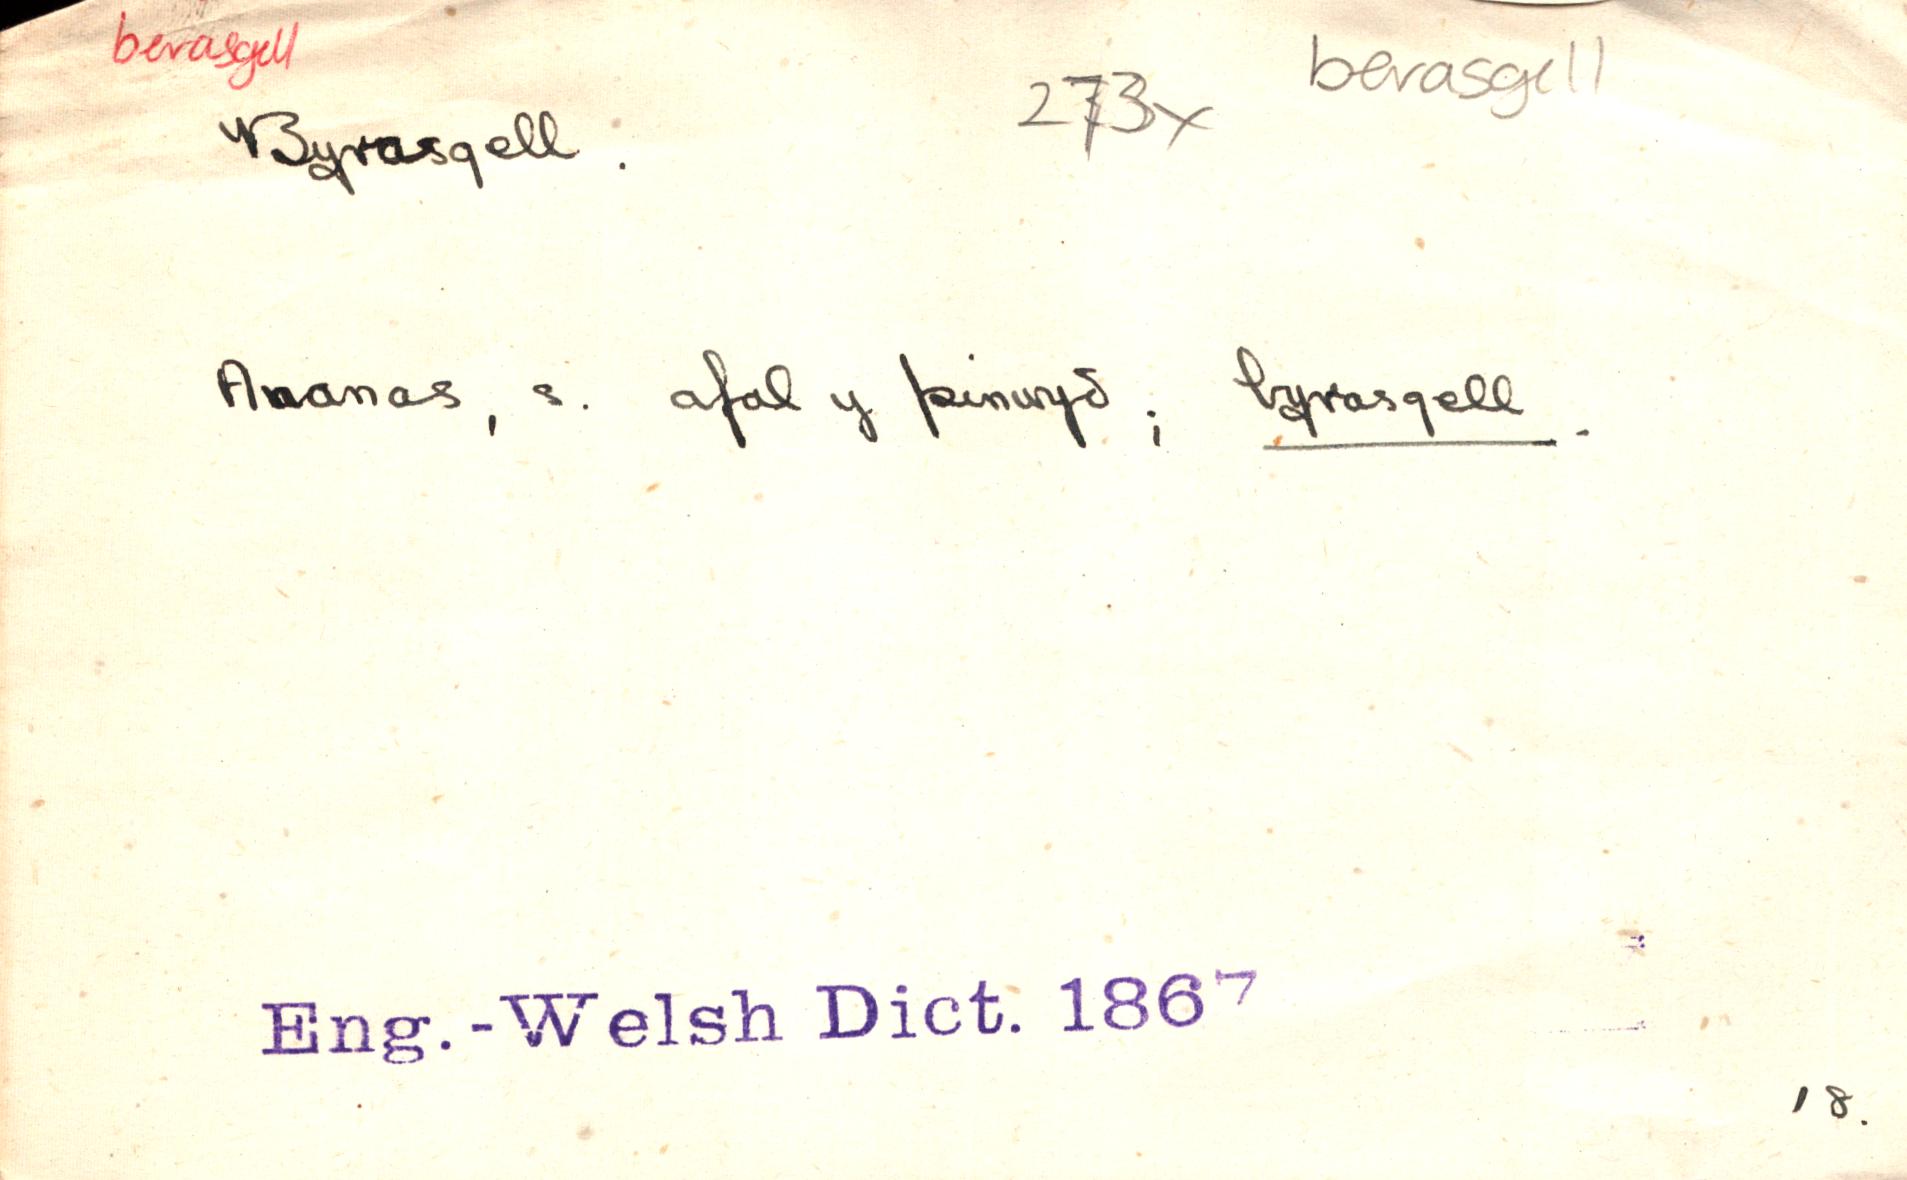 berasgell
273x berasgell
Byrasgell.
Ananas, s. afal y pinwyδ; byrasgell.
Eng.-Welsh Dict. 1867
18.